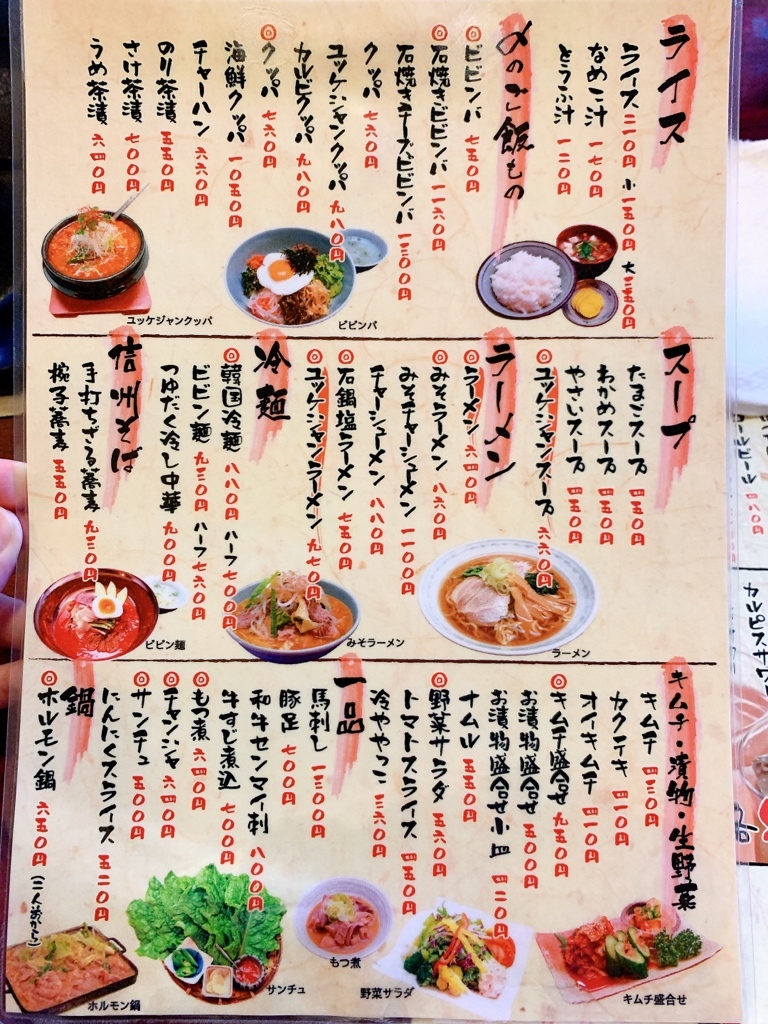 ライス
ライス 二一〇円 小 一五〇円 大 三五〇円
なめこ汁 一七〇円
とうふ汁 一二〇円
〆のご飯もの
◎ビビンバ 七五〇円
◎石焼きビビンバ 一一六〇円
石焼きチーズビビンバ 一三〇〇円
クッパ 七六〇円
ユッケジャンクッパ 九八〇円
カルビクッパ 九八〇円
◎クッパ 七六〇円
海鮮クッパ 一〇五〇円
チャーハン 六六〇円
のり茶漬 五五〇円
さけ茶漬 七〇〇円
うめ茶漬 六四〇円
ビビンバ
ユッケジャンクッパ
スープ
たまごスープ 四五〇円
わかめスープ 四五〇円
やさいスープ 四五〇円
◎ユッケジャンスープ 六六〇円
ラーメン
◎ラーメン 六四〇円
◎みそラーメン 八六〇円
みそチャーシューメン 一一〇〇円
チャーシューメン 八八〇円
◎石鍋塩ラーメン 七五〇円
◎ユッケジャンラーメン 九七〇円
冷麺
◎韓国冷麺 八八〇円 ハーフ 七〇〇円
ビビン麺 九三〇円 ハーフ 七六〇円
つゆだく冷し中華 九〇〇円
信州そば
手打ちざる蕎麦 九三〇円
椀子蕎麦 五五〇円
ラーメン
みそラーメン
ビビン麺
キムチ・漬物・生野菜
キムチ 四三〇円
カクテキ 四一〇円
オイキムチ 四一〇円
◎キムチ盛合せ 九五〇円
お漬物盛合せ 五〇〇円
お漬物盛合せ小皿 四二〇円
ナムル 五五〇円
◎野菜サラダ 五六〇円
トマトスライス 四五〇円
冷ややっこ 三六〇円
一品
馬刺し 一三〇〇円
豚足 七〇〇円
和牛センマイ刺 八〇〇円
牛すじ煮込 七〇〇円
◎もつ煮 六四〇円
◎チャンジャ 六四〇円
◎サンチュ 五〇〇円
にんにくスライス 五二〇円
鍋
◎ホルモン鍋 六五〇円 (二人前から)
キムチ盛合せ
野菜サラダ
もつ煮
サンチュ
ホルモン鍋
カルピスサワー